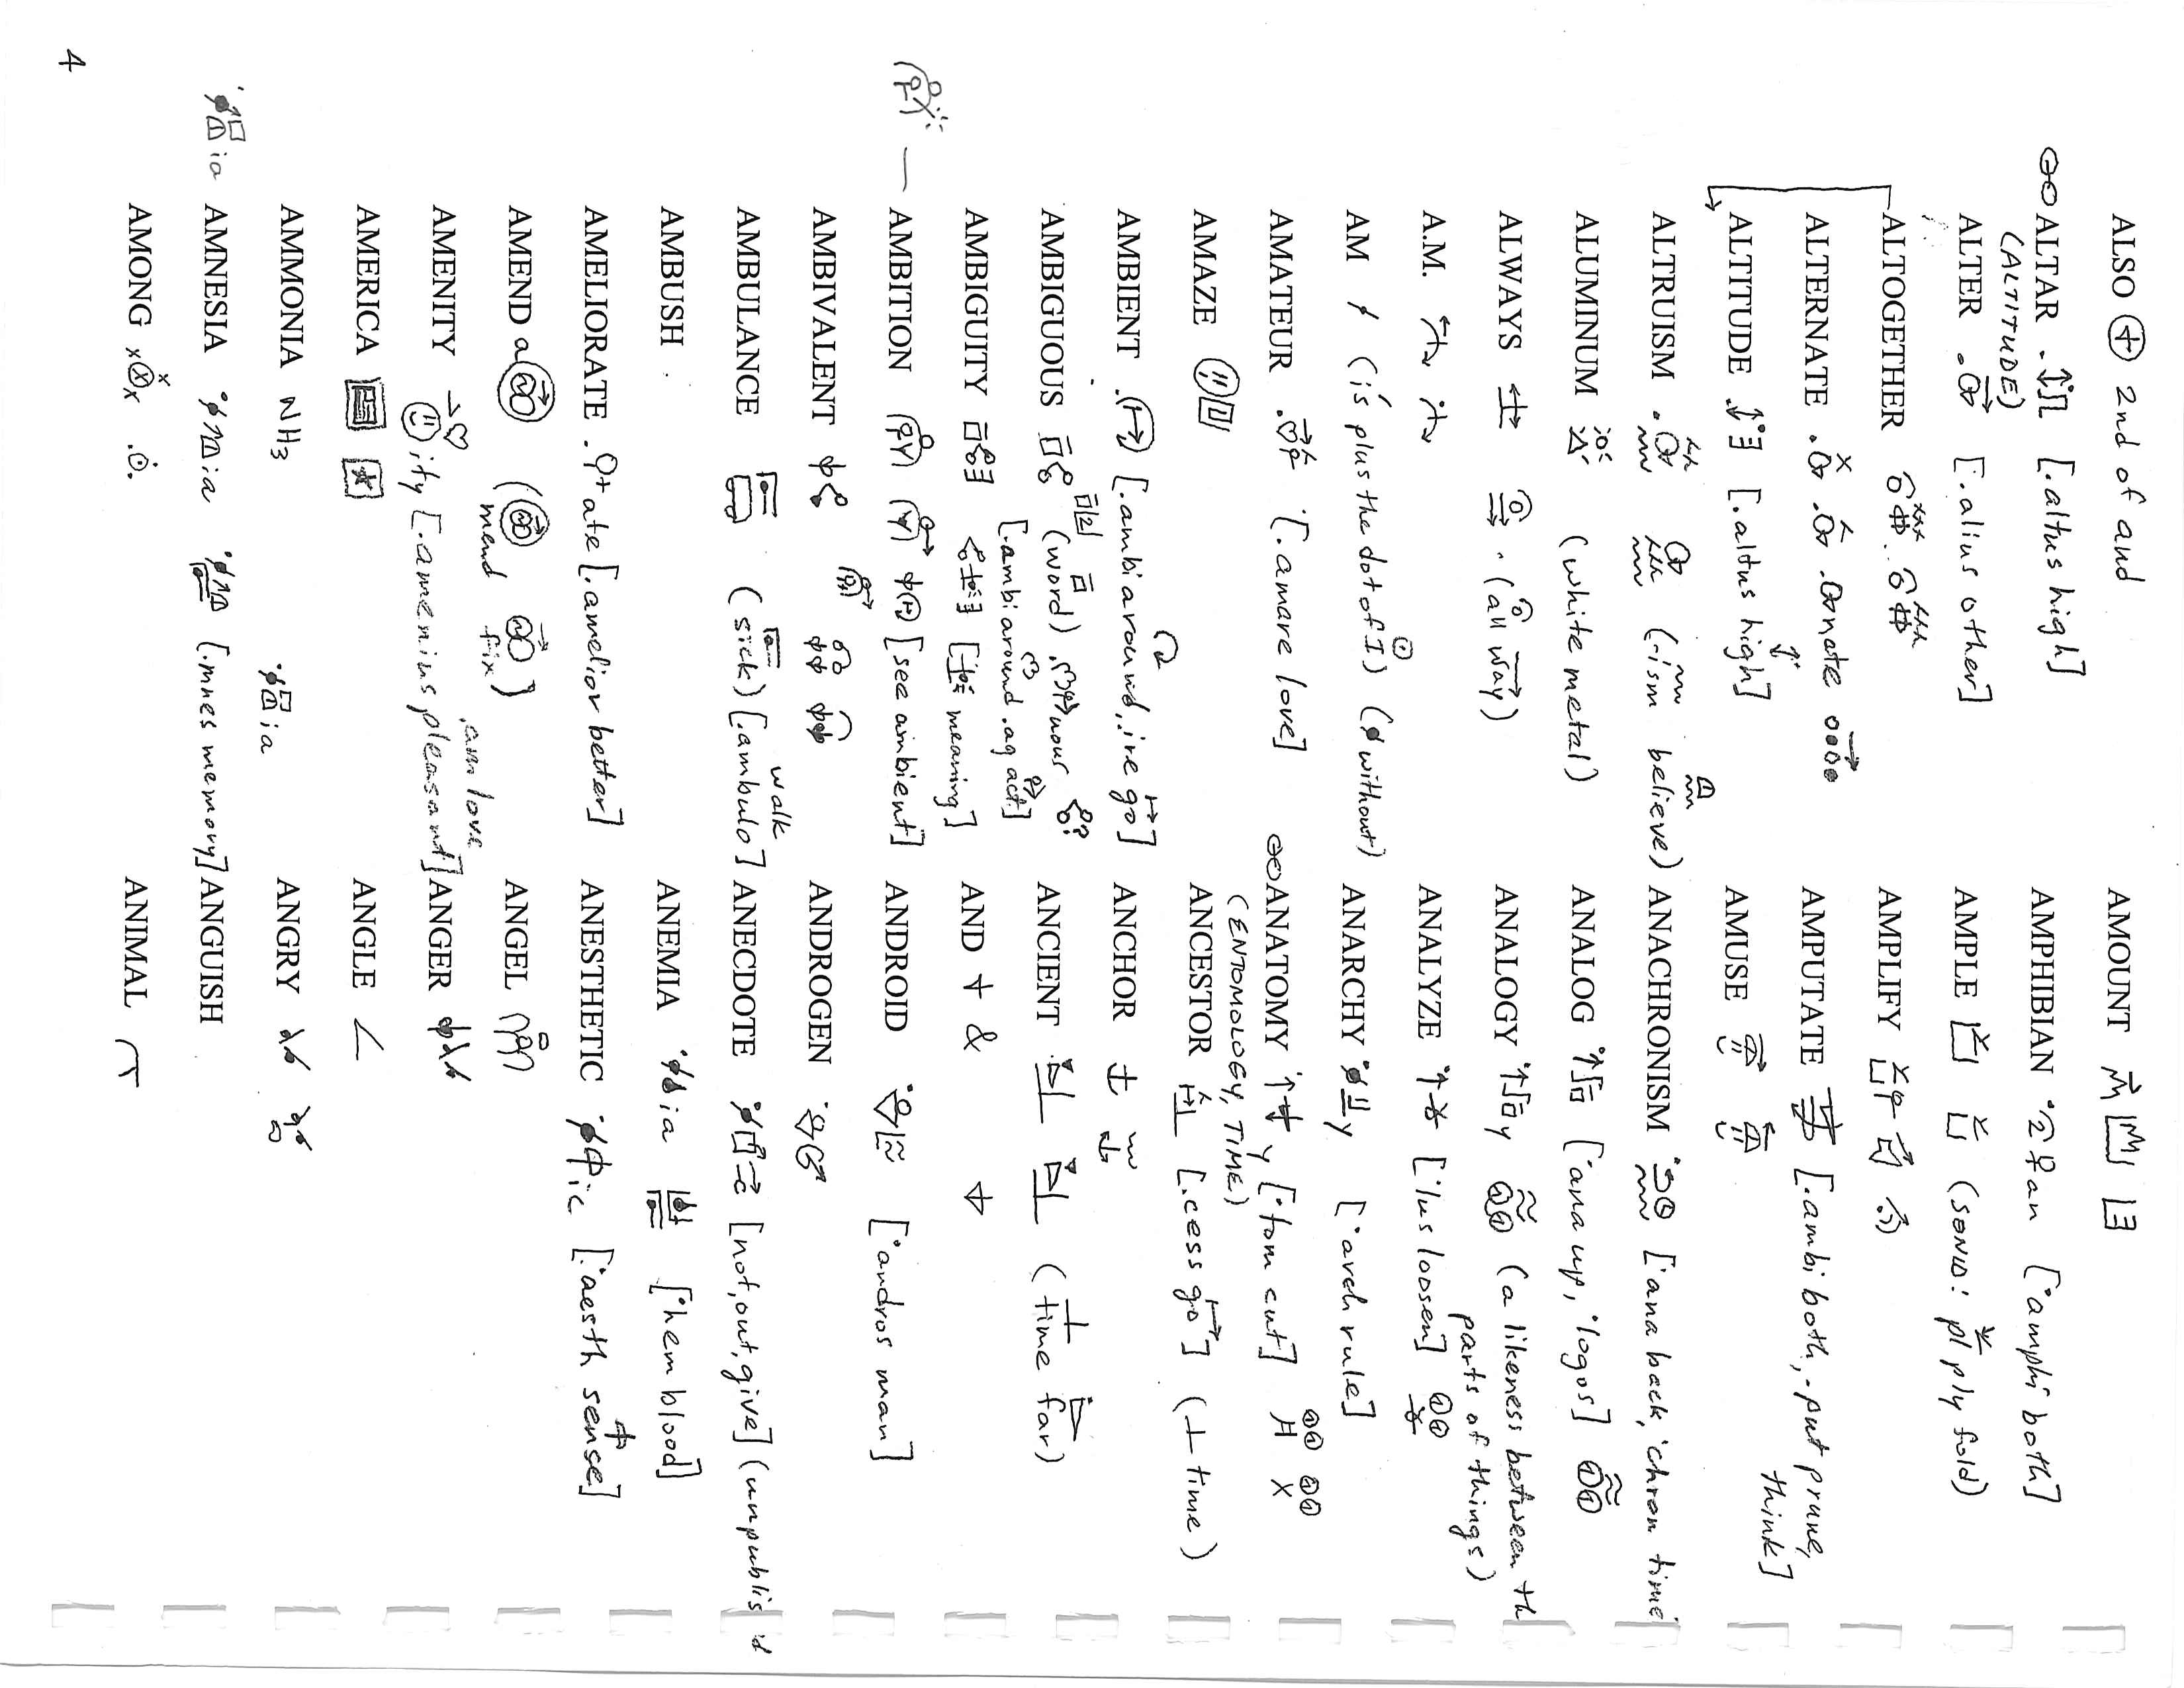 ALSO 2nd of and
ALTAR [.altus high]
(ALTITUDE)
ALTER [.alius other]
ALTOGETHER
ALTERNATE
ALTITUDE [.altus high]
ALTRUISM (-ism believe)
ALUMINUM (white metal)
ALWAYS (all way)
A.M.
AM (is plus the dot of I) (without)
AMATEUR [.amare love]
AMAZE
AMBIENT [.ambi around, .ire go]
AMBIGUOUS (word)
[.ambi around .ag act]
AMBIGUITY [meaning]
AMBITION [see ambient]
AMBIVALENT
AMBULANCE (sick) [.ambulo]
walk
AMBUSH
AMELIORATE ate [.amelior better]
AMEND a
mend fix
AMENITY ity [.amenius pleasant]
.am love
AMERICA
AMMONIA NH3
ia
AMNESIA ia [.mnes memory]
ia
AMONG
AMOUNT
AMPHIBIAN an ['amphi both]
AMPLE (SOND: pl ply fold)
AMPLIFY
AMPUTATE [.ambi both, .put prune,
think]
AMUSE
ANACHRONISM ['ana back, 'chron time
ANALOG ['ana up, 'logos]
ANALOGY y (a likeness between th
parts of things)
ANALYZE ['lus loosen]
ANARCHY y ['arch rule]
ANATOMY y ['tom cut]
(ENTOMOLOGY, TIME)
ANCESTOR [.cess go] (time)
ANCHOR
ANCIENT (time far)
AND + &
ANDROID ['andros man]
ANDROGEN
ANECDOTE [not, out, give] (unpublis'd
ANEMIA ia ['hem blood]
ANESTHETIC ic ['aesth sense]
ANGEL
ANGER
ANGLE
ANGRY
ANGUISH
ANIMAL
4